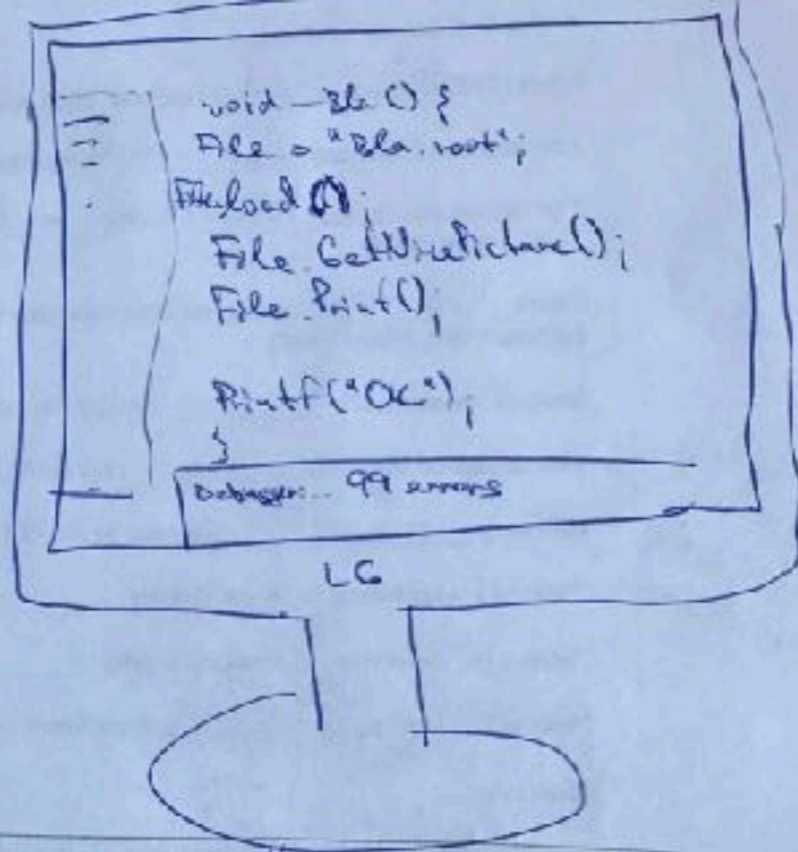 void Bla() {
File = "Bla.root";
File.load();
File.GetNicePicture();
File.Print();
Printf("OK");
}
Debugger... 99 errors
LG